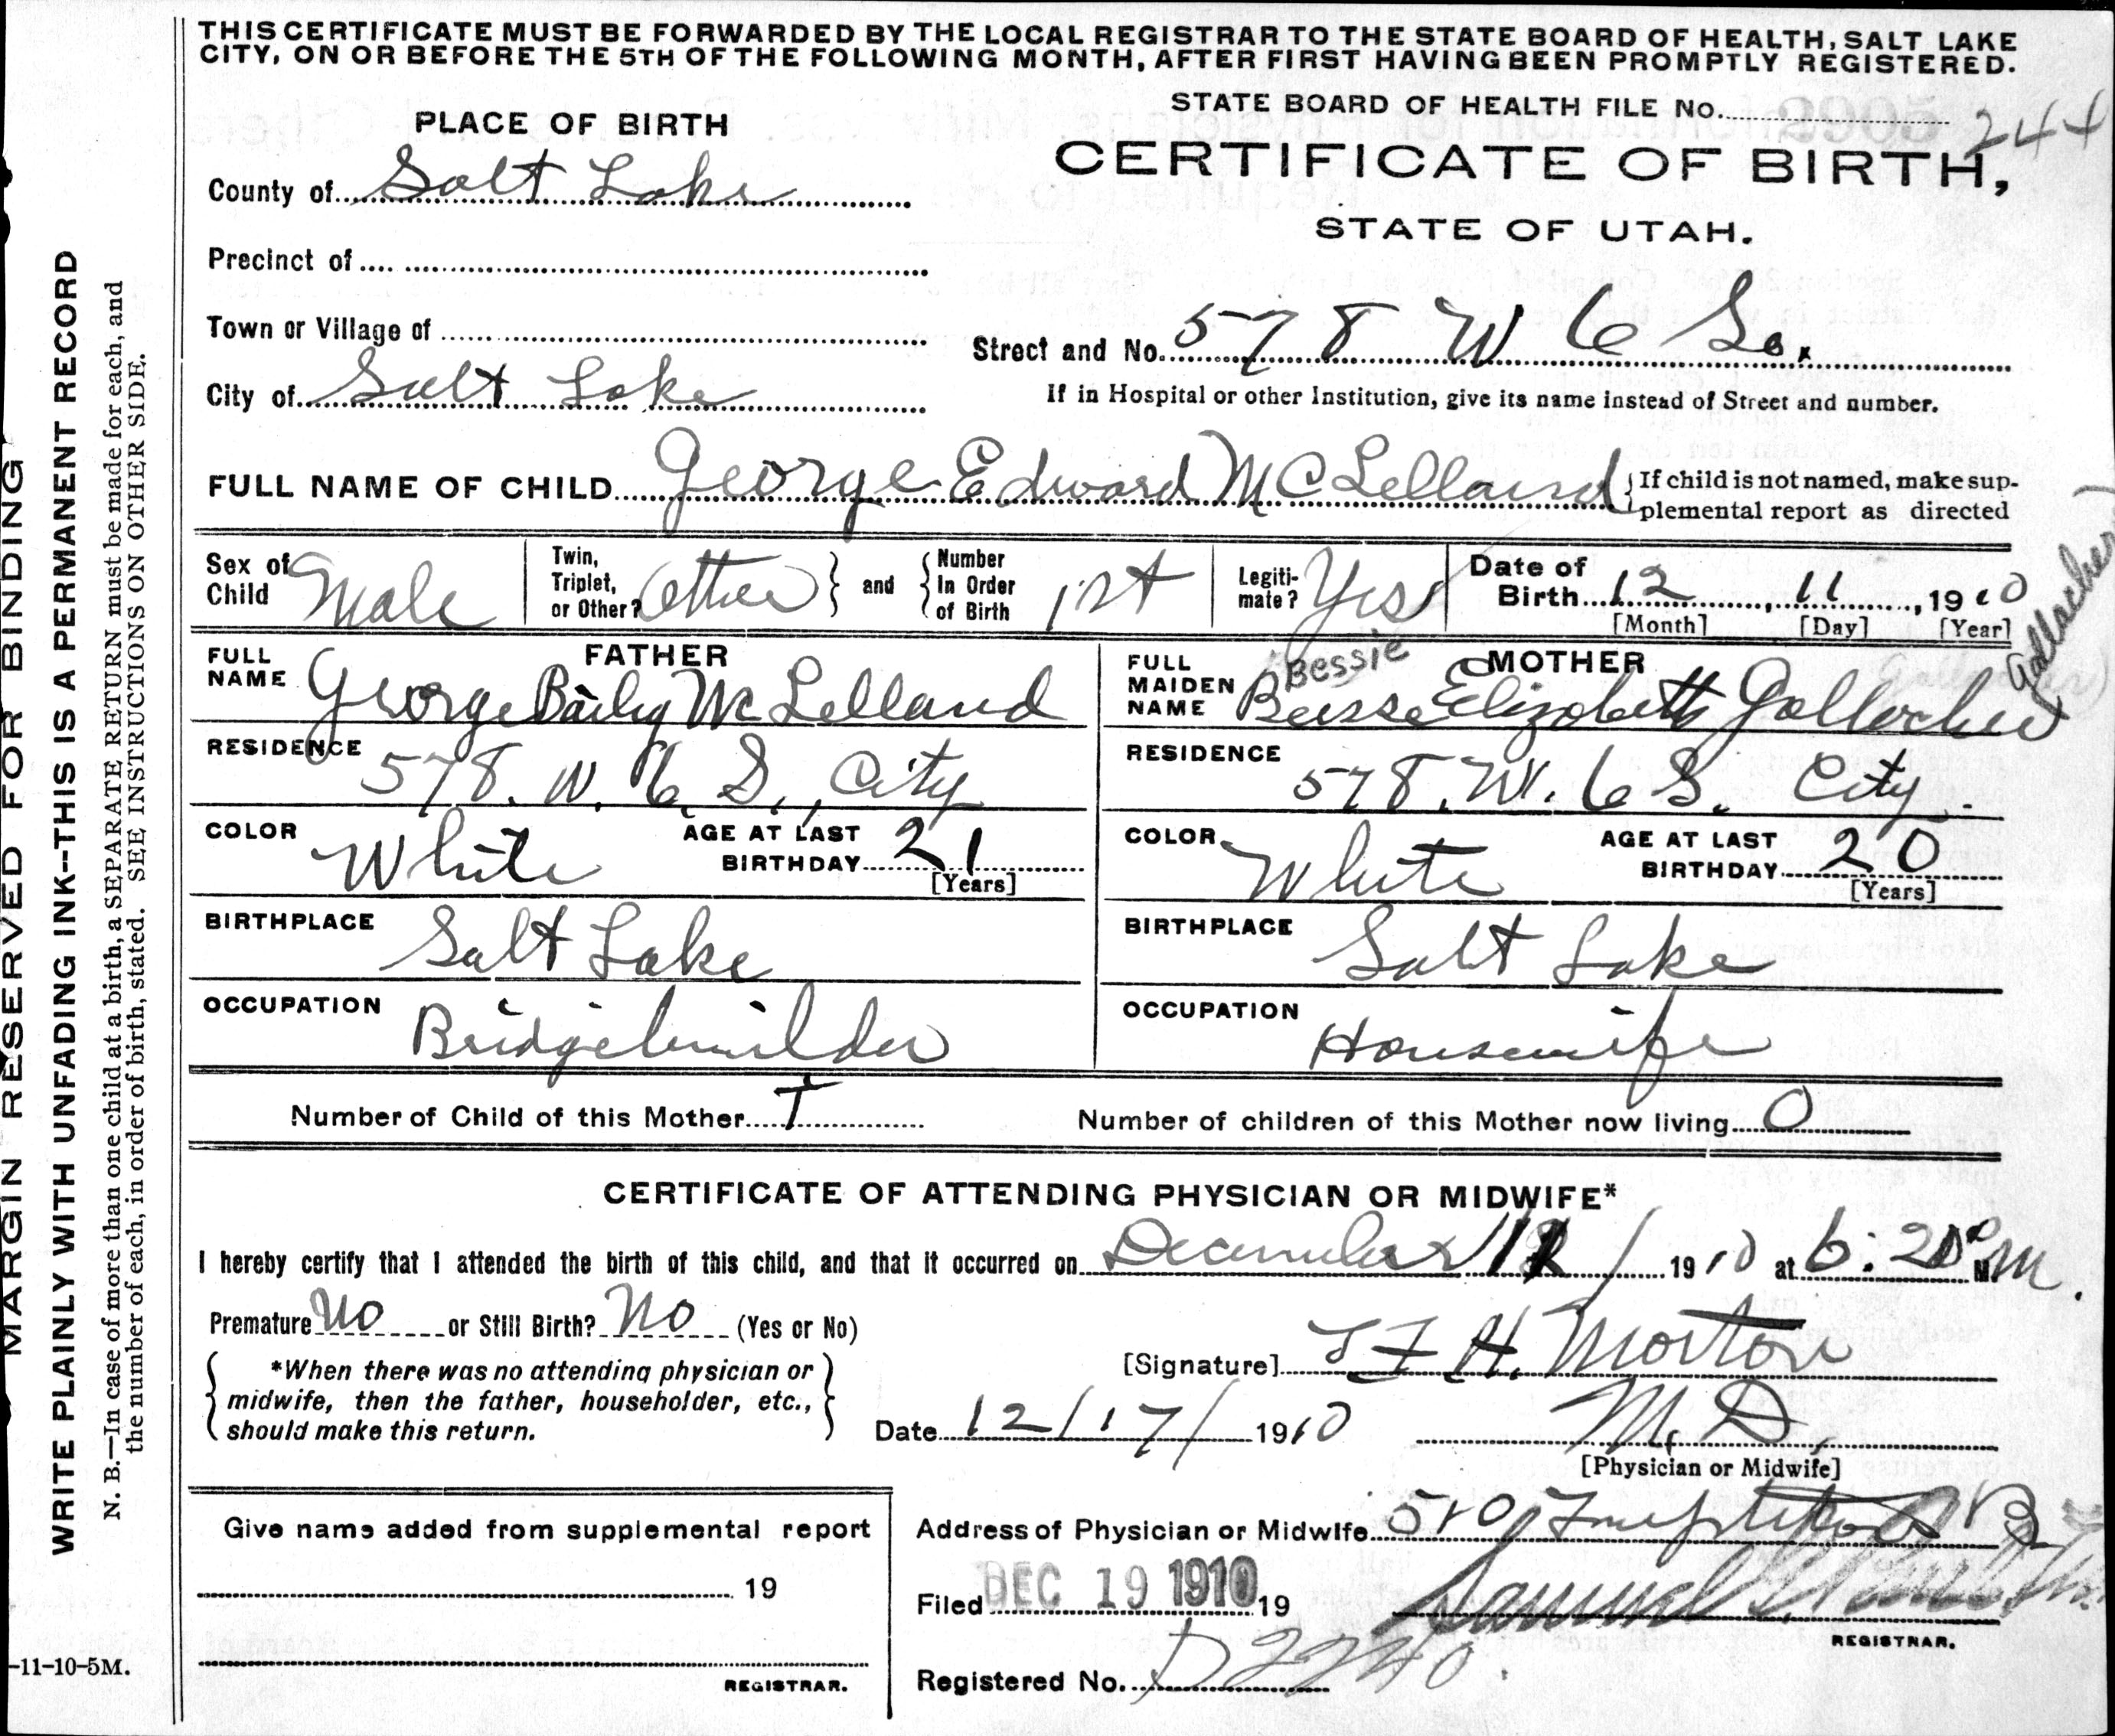 THIS CERTIFICATE MUST BE FORWARDED BY THE LOCAL REGISTRAR TO THE STATE BOARD OF HEALTH, SALT LAKE
CITY, ON OR BEFORE THE 5TH OF THE FOLLOWING MONTH, AFTER FIRST HAVING BEEN PROMPTLY REGISTERED.
STATE BOARD OF HEALTH FILE No. 244
PLACE OF BIRTH
CERTIFICATE OF BIRTH,
STATE OF UTAH.
County of Salt Lake
Precinct of
Town or Village of
Street and No. 578 W 6 So.
City of Salt Lake
If in Hospital or other Institution, give its name instead of Street and number.
FULL NAME OF CHILD George Edward McLelland
If child is not named, make sup-
plemental report as directed
Sex of Child Male
Twin, Triplet, or Other? Other and Number In Order of Birth 1st
Legiti-mate? Yes
Date of Birth 12, 11, 1910
[Month] [Day] [Year]
FATHER
FULL NAME George Baily McLelland
RESIDENCE 578. W. 6. S., City
COLOR White AGE AT LAST BIRTHDAY 21
[Years]
BIRTHPLACE Salt Lake
OCCUPATION Bridgebuilder
MOTHER
Bessie
FULL MAIDEN NAME Bessie Elizabeth Gallacher
Gallacher)
RESIDENCE 578. W. 6 S. City.
COLOR White AGE AT LAST BIRTHDAY 20
[Years]
BIRTHPLACE Salt Lake
OCCUPATION Housewife
Number of Child of this Mother 1
Number of children of this Mother now living 0
CERTIFICATE OF ATTENDING PHYSICIAN OR MIDWIFE*
I hereby certify that I attended the birth of this child, and that it occurred on December 11 1910 at 6:20 P M.
Premature No or Still Birth? No (Yes or No)
*When there was no attending physician or
midwife, then the father, householder, etc.,
should make this return.
[Signature] H. Morton
Date 12/17/1910
M. D.
[Physician or Midwife]
Address of Physician or Midwife 510
Give name added from supplemental report
19
REGISTRAR.
Filed DEC 19 1910 19
Samuel
REGISTRAR.
Registered No. D2240.
MARGIN RESERVED FOR BINDING
WRITE PLAINLY WITH UNFADING INK--THIS IS A PERMANENT RECORD
N. B.—In case of more than one child at a birth, a SEPARATE RETURN must be made for each, and
the number of each, in order of birth, stated. SEE INSTRUCTIONS ON OTHER SIDE.
-11-10-5M.